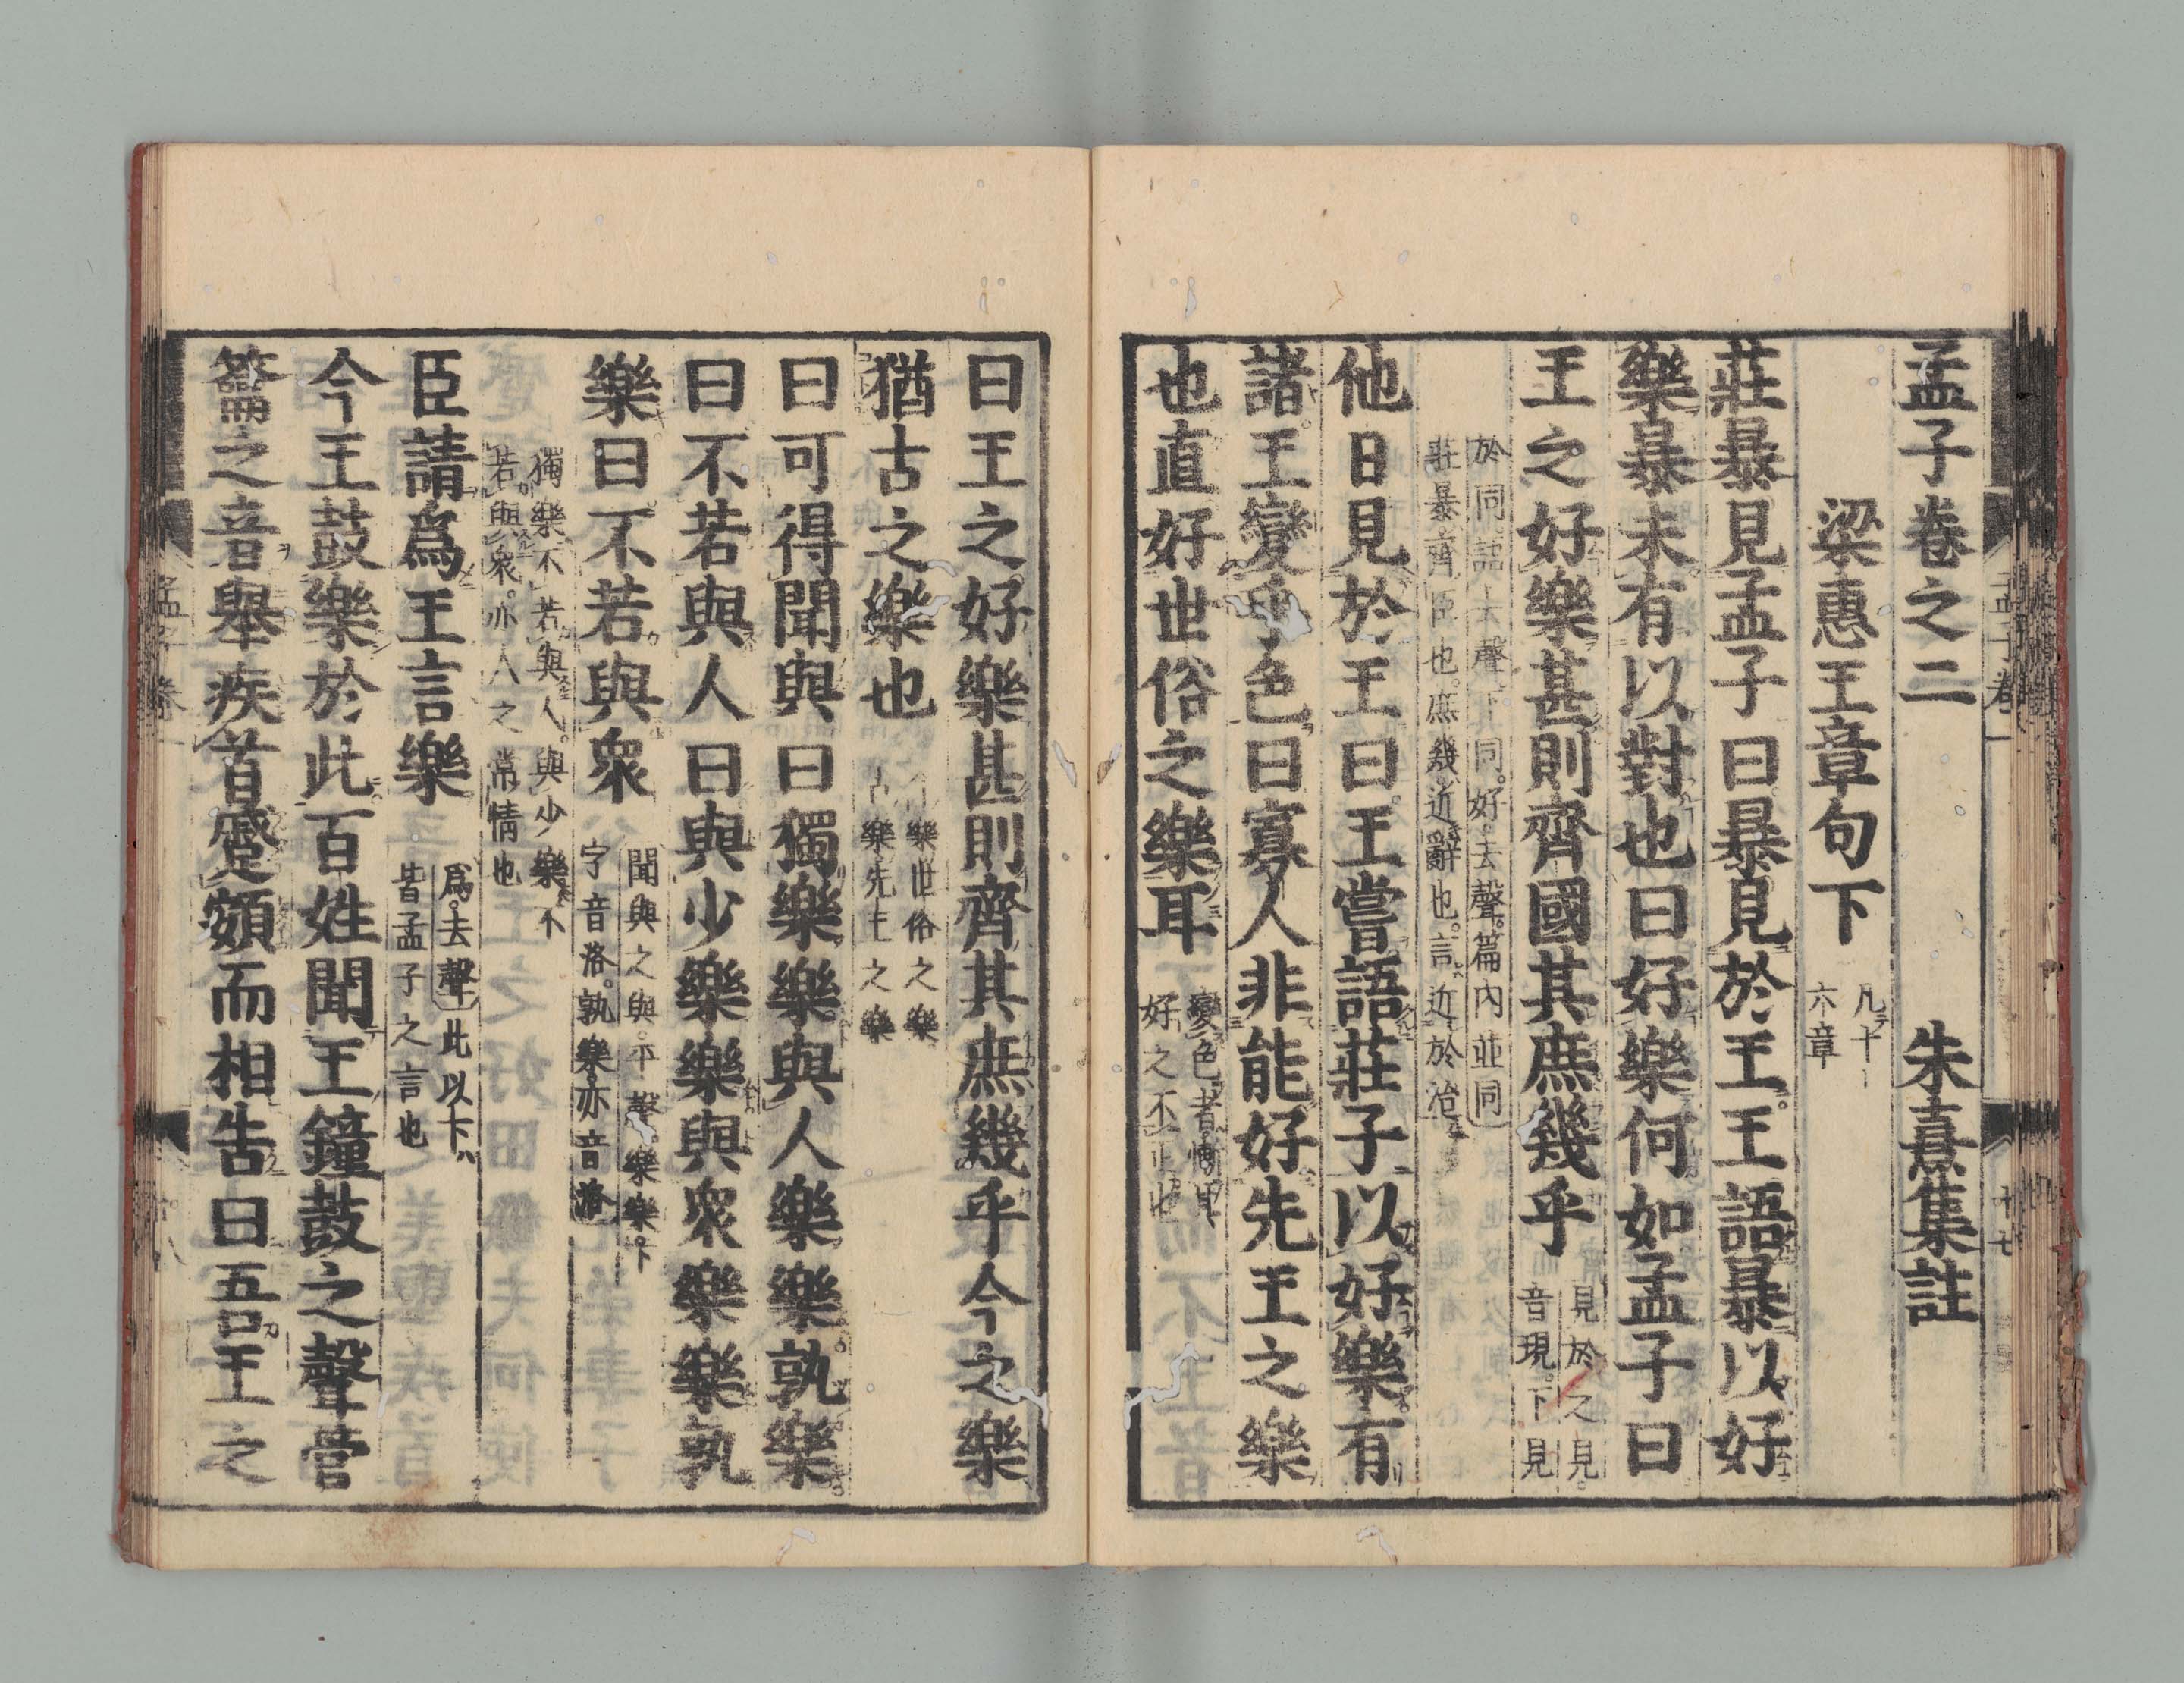 孟子卷之二　朱熹集註
梁惠王章句下 凡十六章
莊暴見孟子曰暴見於王王語暴以好
樂暴未有以對也曰好樂何如孟子曰
王之好樂甚則齊國其庶幾乎 見於之見音現下見
於同語去聲下同好去聲篇內並同
莊暴齊臣也庶幾近辭也言近於治
他日見於王曰王嘗語莊子以好樂有
諸王變乎色曰寡人非能好先王之樂
也直好世俗之樂耳 變色者慚其好之不正也
曰王之好樂甚則齊其庶幾乎今之樂
猶古之樂也 今樂世俗之樂古樂先王之樂
曰可得聞與曰獨樂樂與人樂樂孰樂
曰不若與人曰與少樂樂與眾樂樂孰
樂曰不若與眾 聞與之與平聲樂樂下字音洛孰樂亦音洛
獨樂不若與人與少樂不
若與眾亦人之常情也
臣請為王言樂 為去聲此以下皆孟子之言也
今王鼓樂於此百姓聞王鐘鼓之聲管
籥之音舉疾首蹙頞而相告曰吾王之